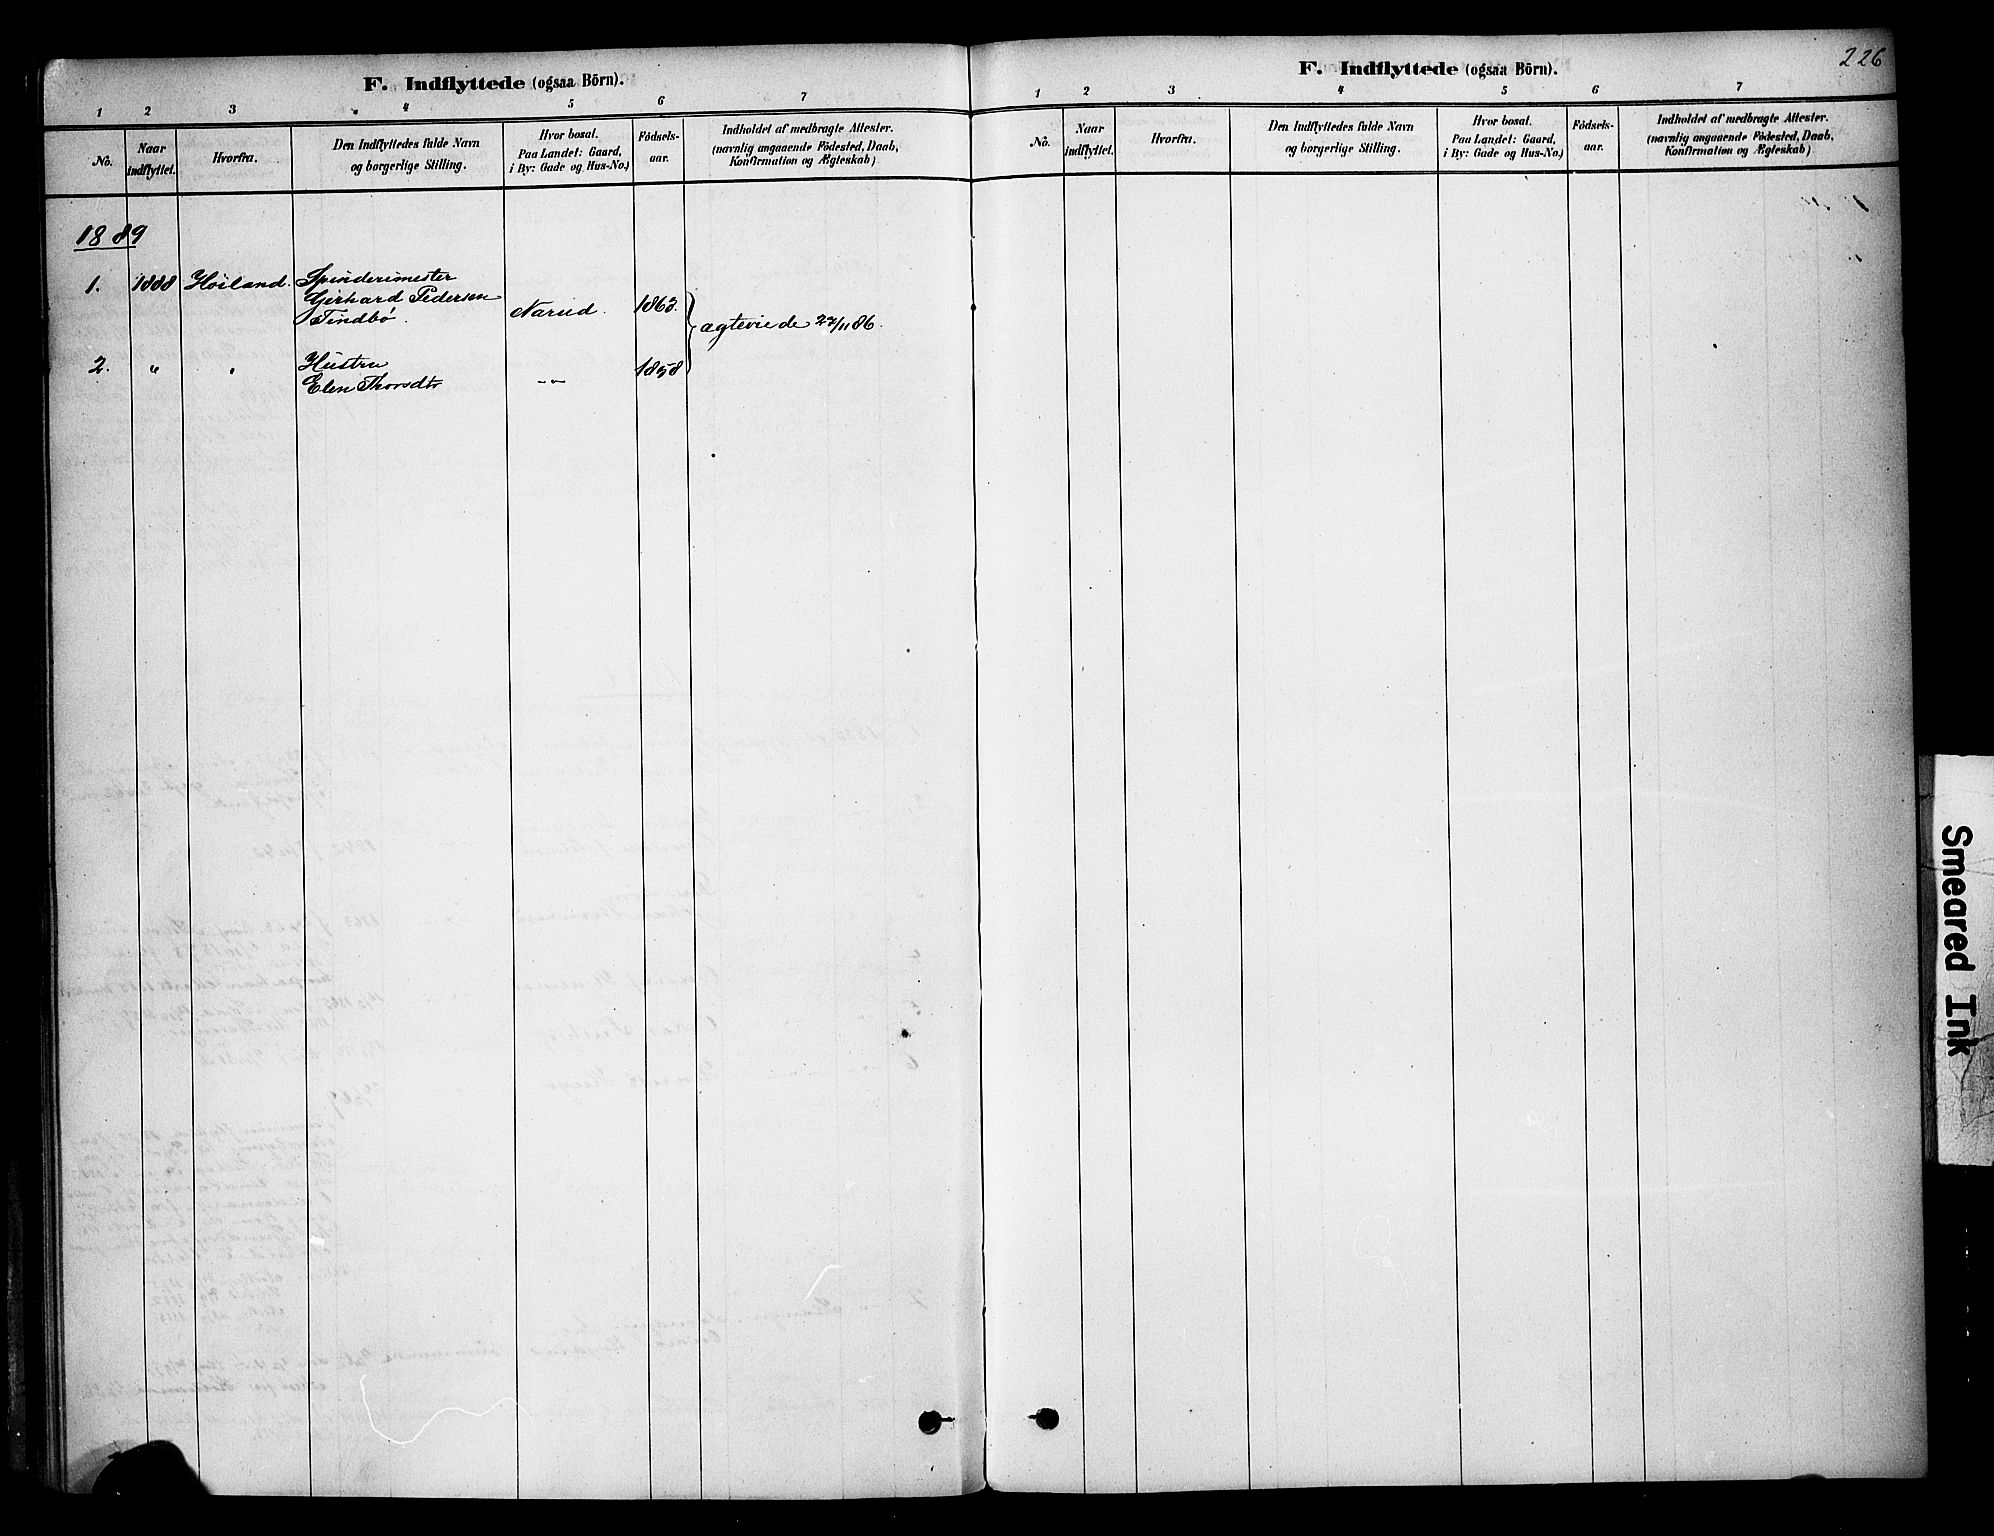 F. Indflyttede (ogsaa Börn).
1 2 3 4 5 6 7
No. Naar indflyttet. Hvorfra. Den Indflyttedes fulde Navn og borgerlige Stilling. Hvor bosat. Paa Landet: Gaard, i By: Gade og Hus-No.) Födsels-aar. Indholdet af medbragte Attester. (navnlig angaaende Födested, Daab, Konfirmation og Ægteskab)
1889
1. 1888 Höiland. Spinderimester
Gerhard Pedersen
Tindbö. Narud. 1863. ægteviede 27/11 86.
2. " " Hustru
Elen Thorsdtr -"- 1858
226
F. Indflyttede (ogsaa Börn).
1 2 3 4 5 6 7
No. Naar indflyttet. Hvorfra. Den Indflyttedes fulde Navn og borgerlige Stilling. Hvor bosat. Paa Landet: Gaard, i By: Gade og Hus-No.) Födsels-aar. Indholdet af medbragte Attester. (navnlig angaaende Födested, Daab, Konfirmation og Ægteskab)
Smeared Ink